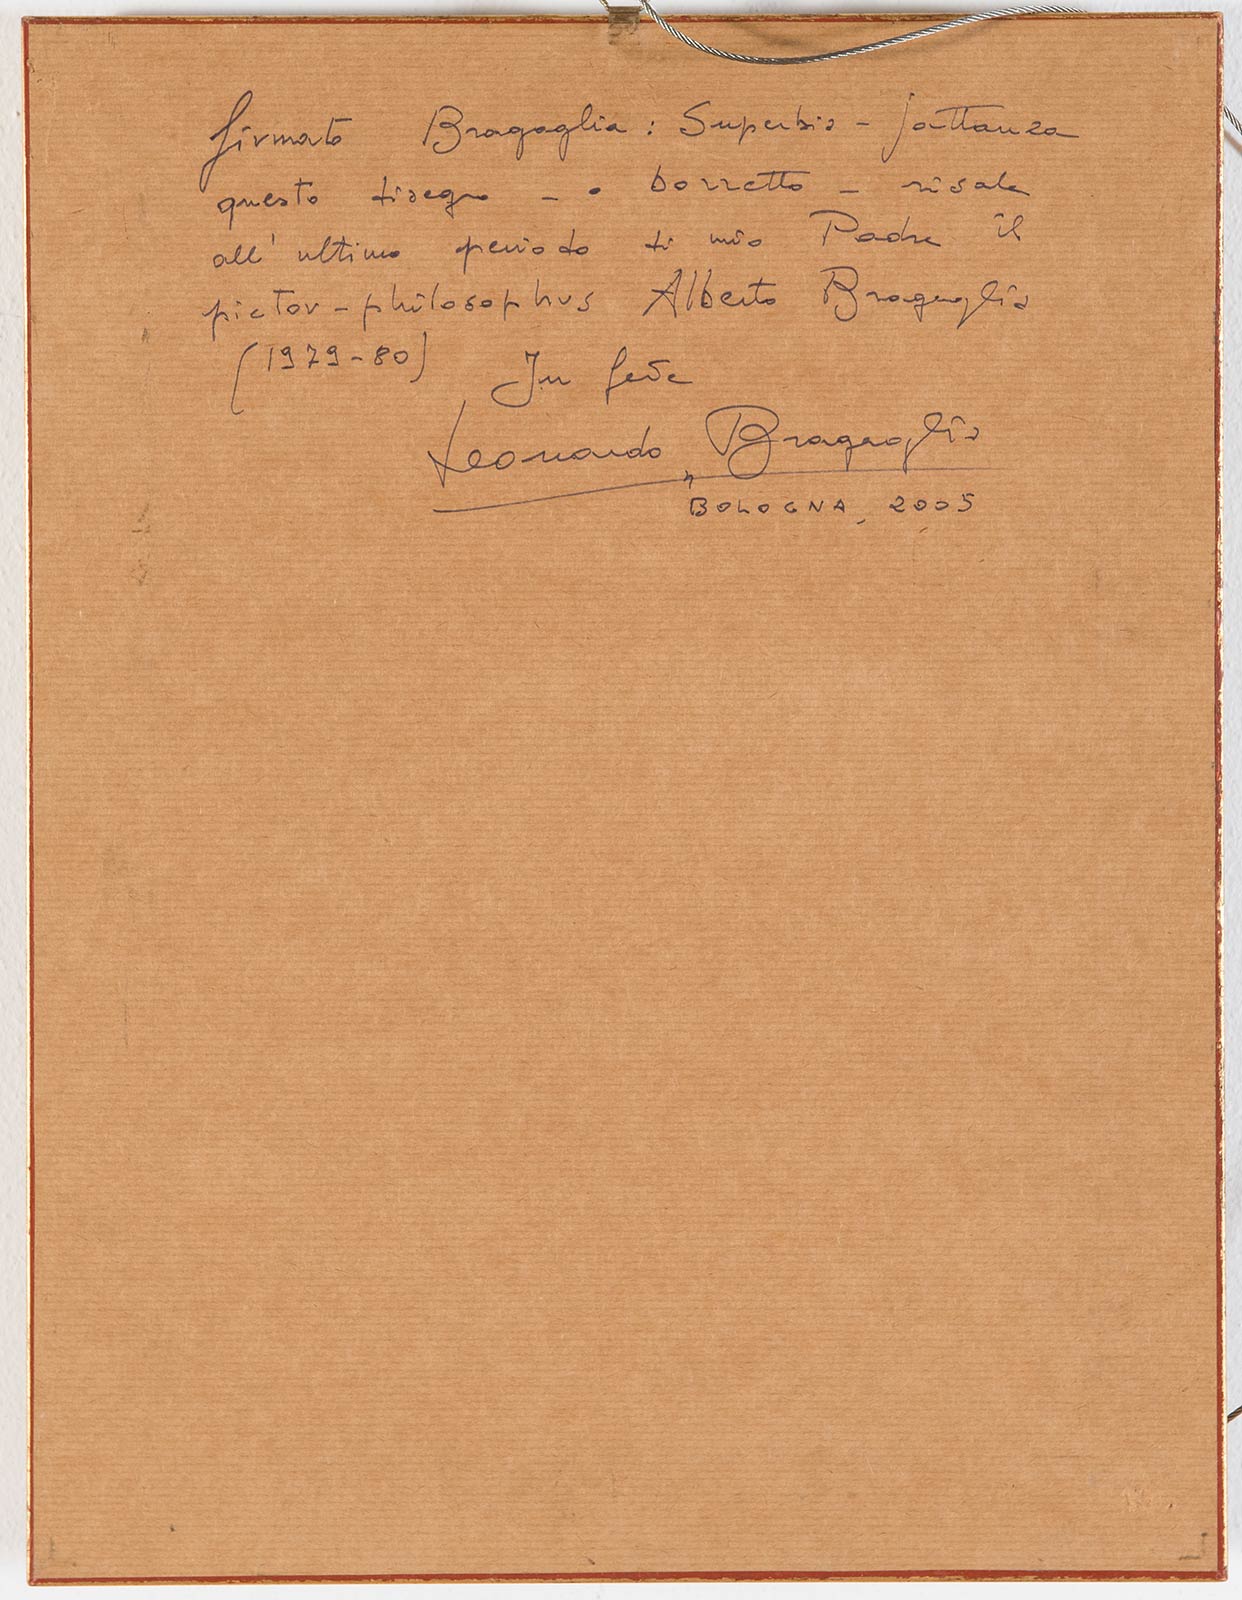 firmato Bragaglia: Superbia - jattanza
questo disegno - o bozzetto - risale
all'ultimo periodo di mio Padre il
pictor-philosophus Alberto Bragaglia
(1979-80) In fede
Leonardo Bragaglia
BOLOGNA, 2005